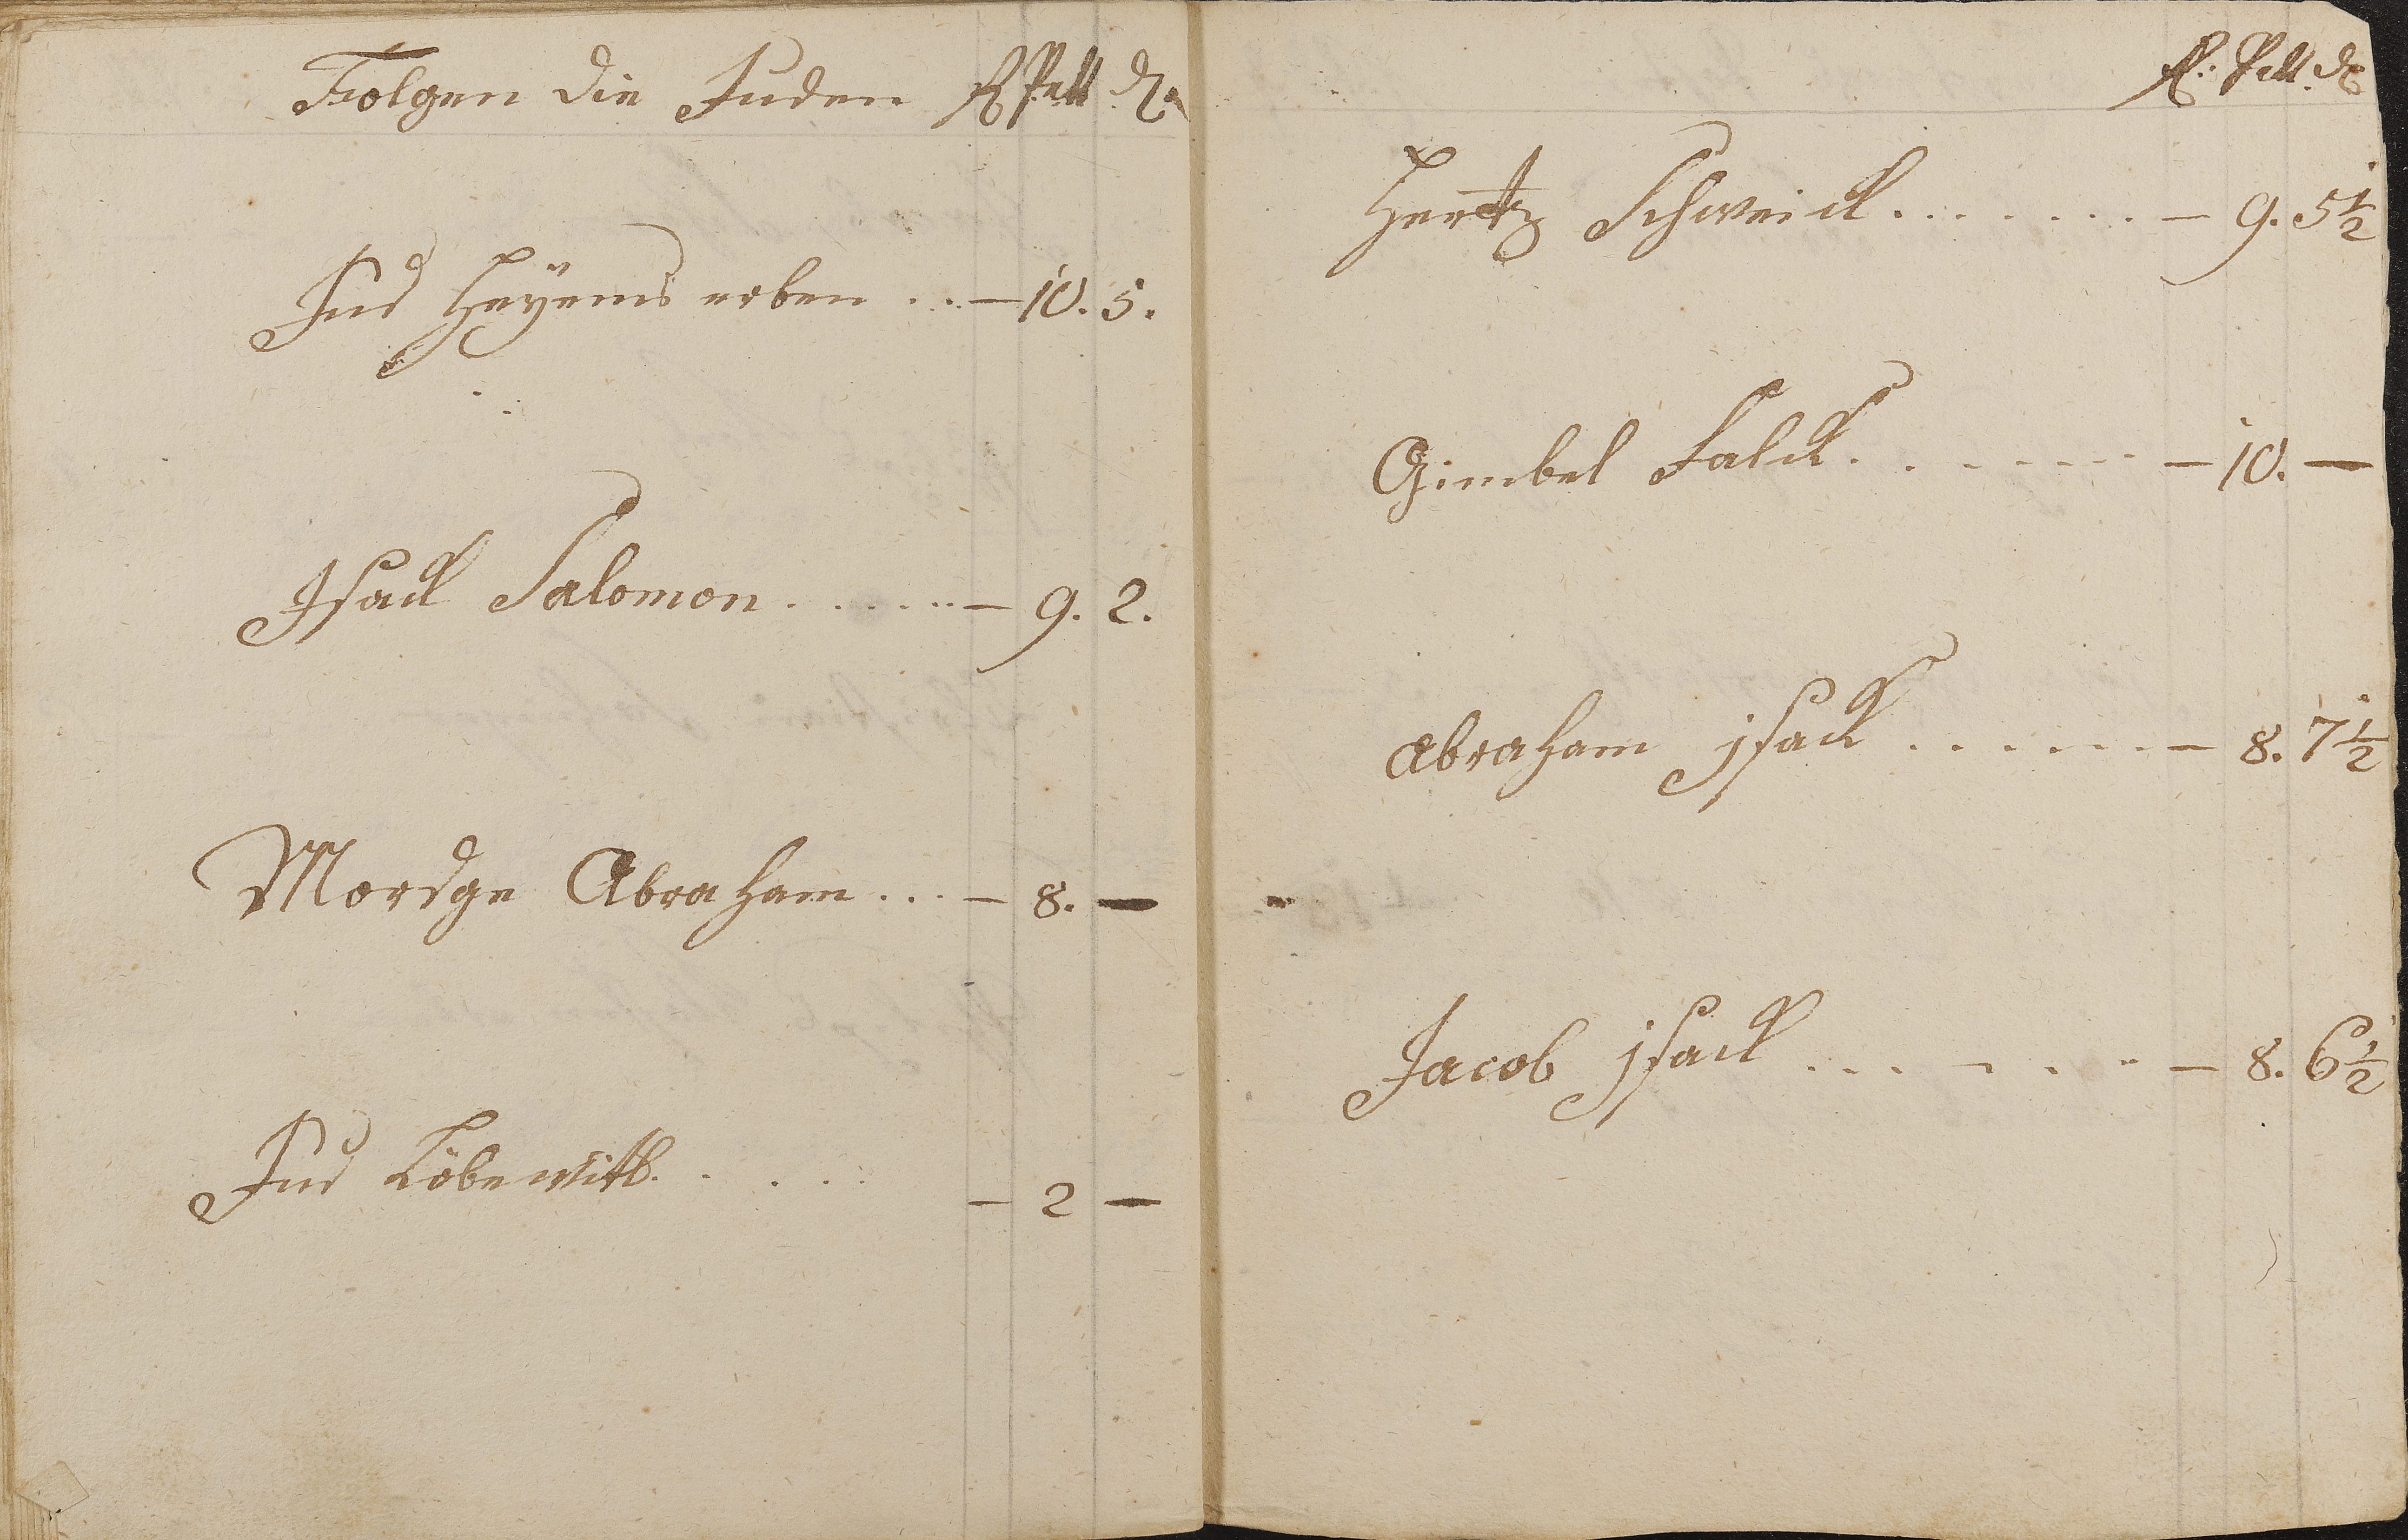 Folgen die Juden R Pett ₰
Jud Heÿems erben . . . — 10. 5.
Isack Salomon . . . . . . — 9. 2.
Mordge Abraham . . . — 8. —
Jud Löbe Witb. . . . . — 2 —
R. Pett. ₰
Hertz Schweick . . . . . . . — 9. 5½
Gimbel Falck . . . . . . . — 10. —
Abraham jsack . . . . . . . — 8. 7½
Jacob jsack . . . . . . . — 8. 6½